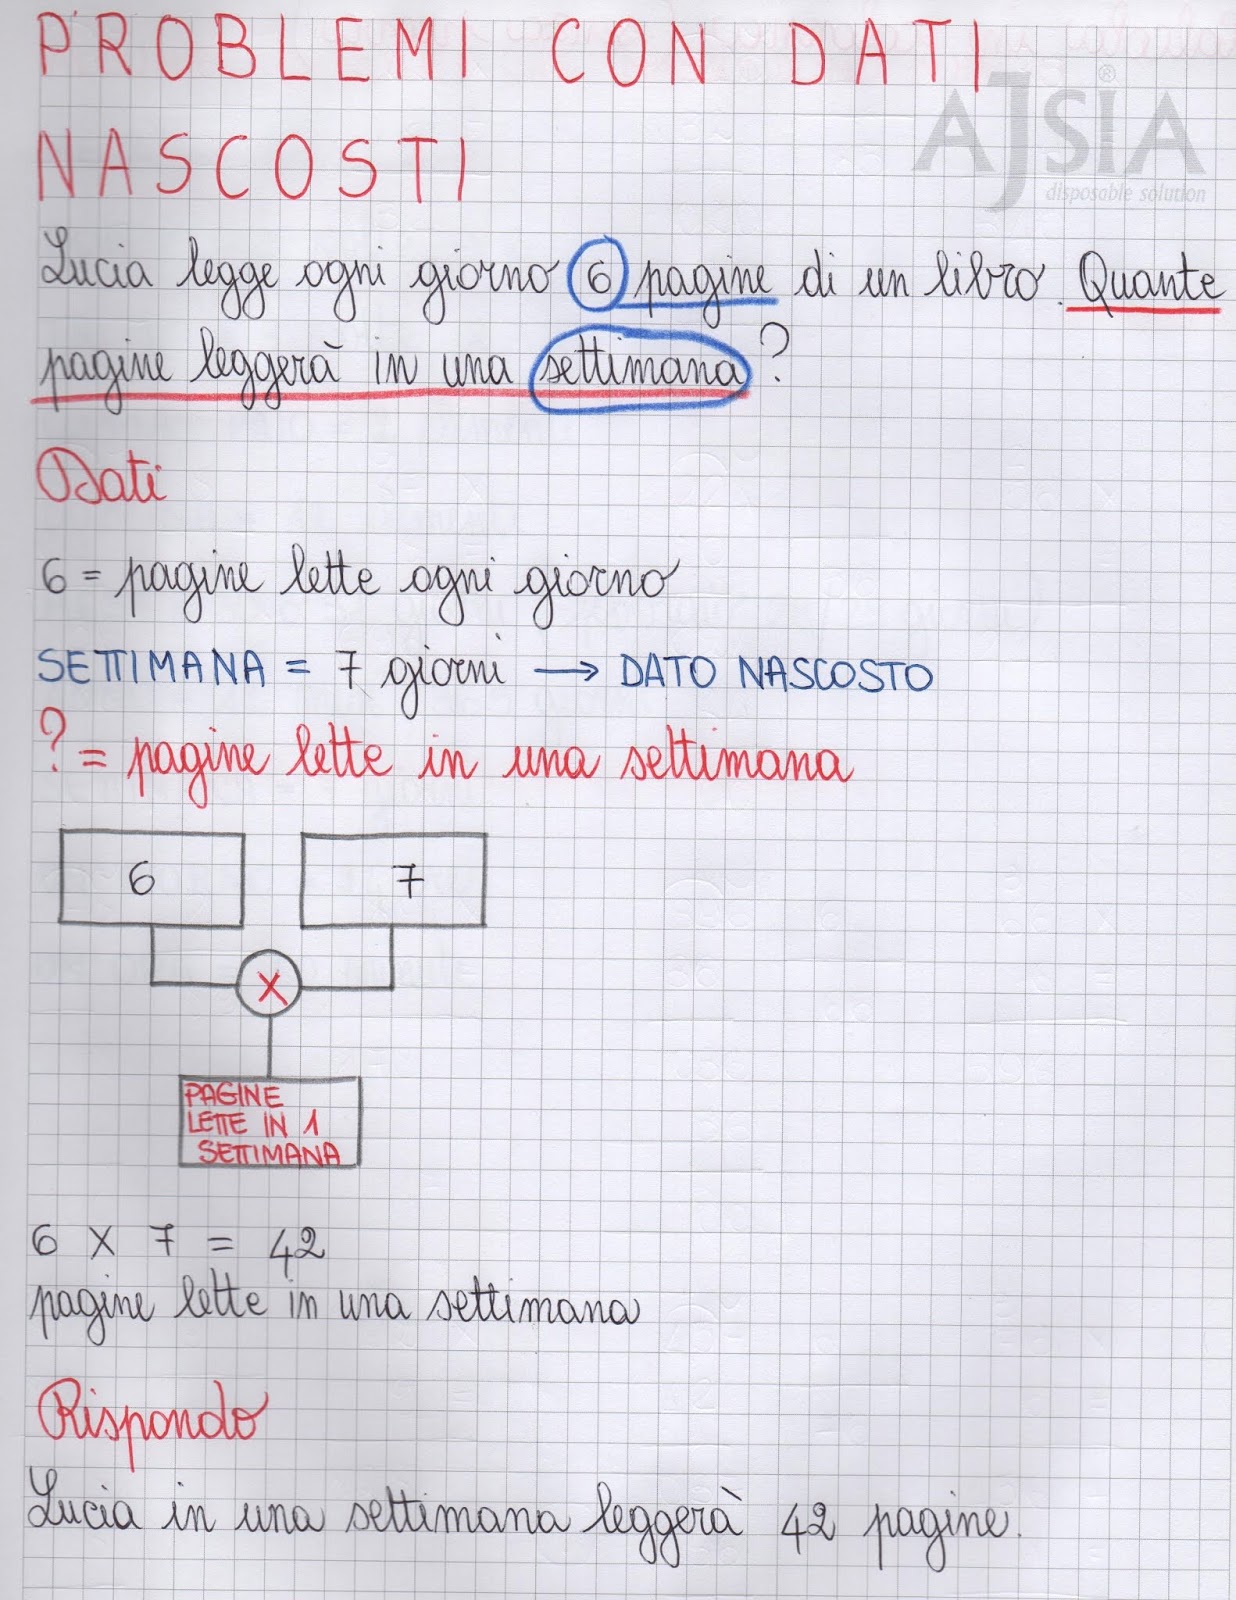 PROBLEMI CON DATI
NASCOSTI
AJSIA®
disposable solution
Lucia legge ogni giorno 6 pagine di un libro. Quante
pagine leggerà in una settimana?
Dati
6 = pagine lette ogni giorno
SETTIMANA = 7 giorni → DATO NASCOSTO
? = pagine lette in una settimana
6 7
X
PAGINE
LETTE IN 1
SETTIMANA
6 X 7 = 42
pagine lette in una settimana
Rispondo
Lucia in una settimana leggerà 42 pagine.